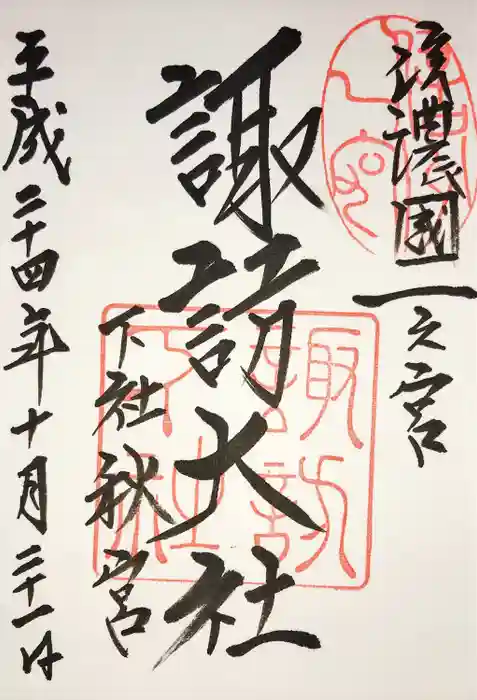 信濃國一之宮
諏訪大社
下社秋宮
平成二十四年十月二十一日